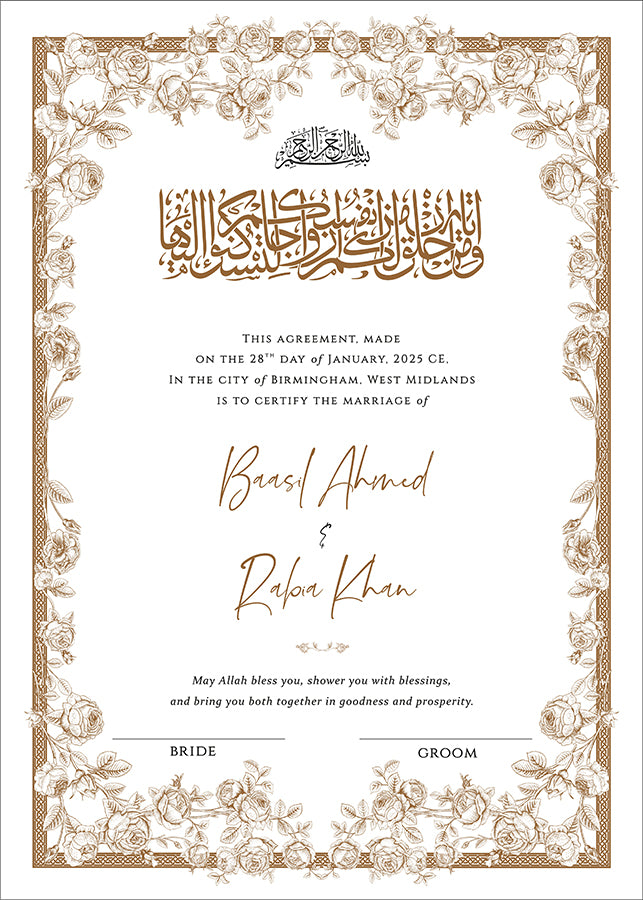 بسم الله الرحمن الرحيم
ومن آياته أن خلق لكم من أنفسكم أزواجا لتسكنوا إليها
THIS AGREEMENT, MADE
ON THE 28TH DAY of JANUARY, 2025 CE,
IN THE CITY of BIRMINGHAM, WEST MIDLANDS
IS TO CERTIFY THE MARRIAGE of
Baasil Ahmed
&
Rabia Khan
May Allah bless you, shower you with blessings,
and bring you both together in goodness and prosperity.
BRIDE
GROOM